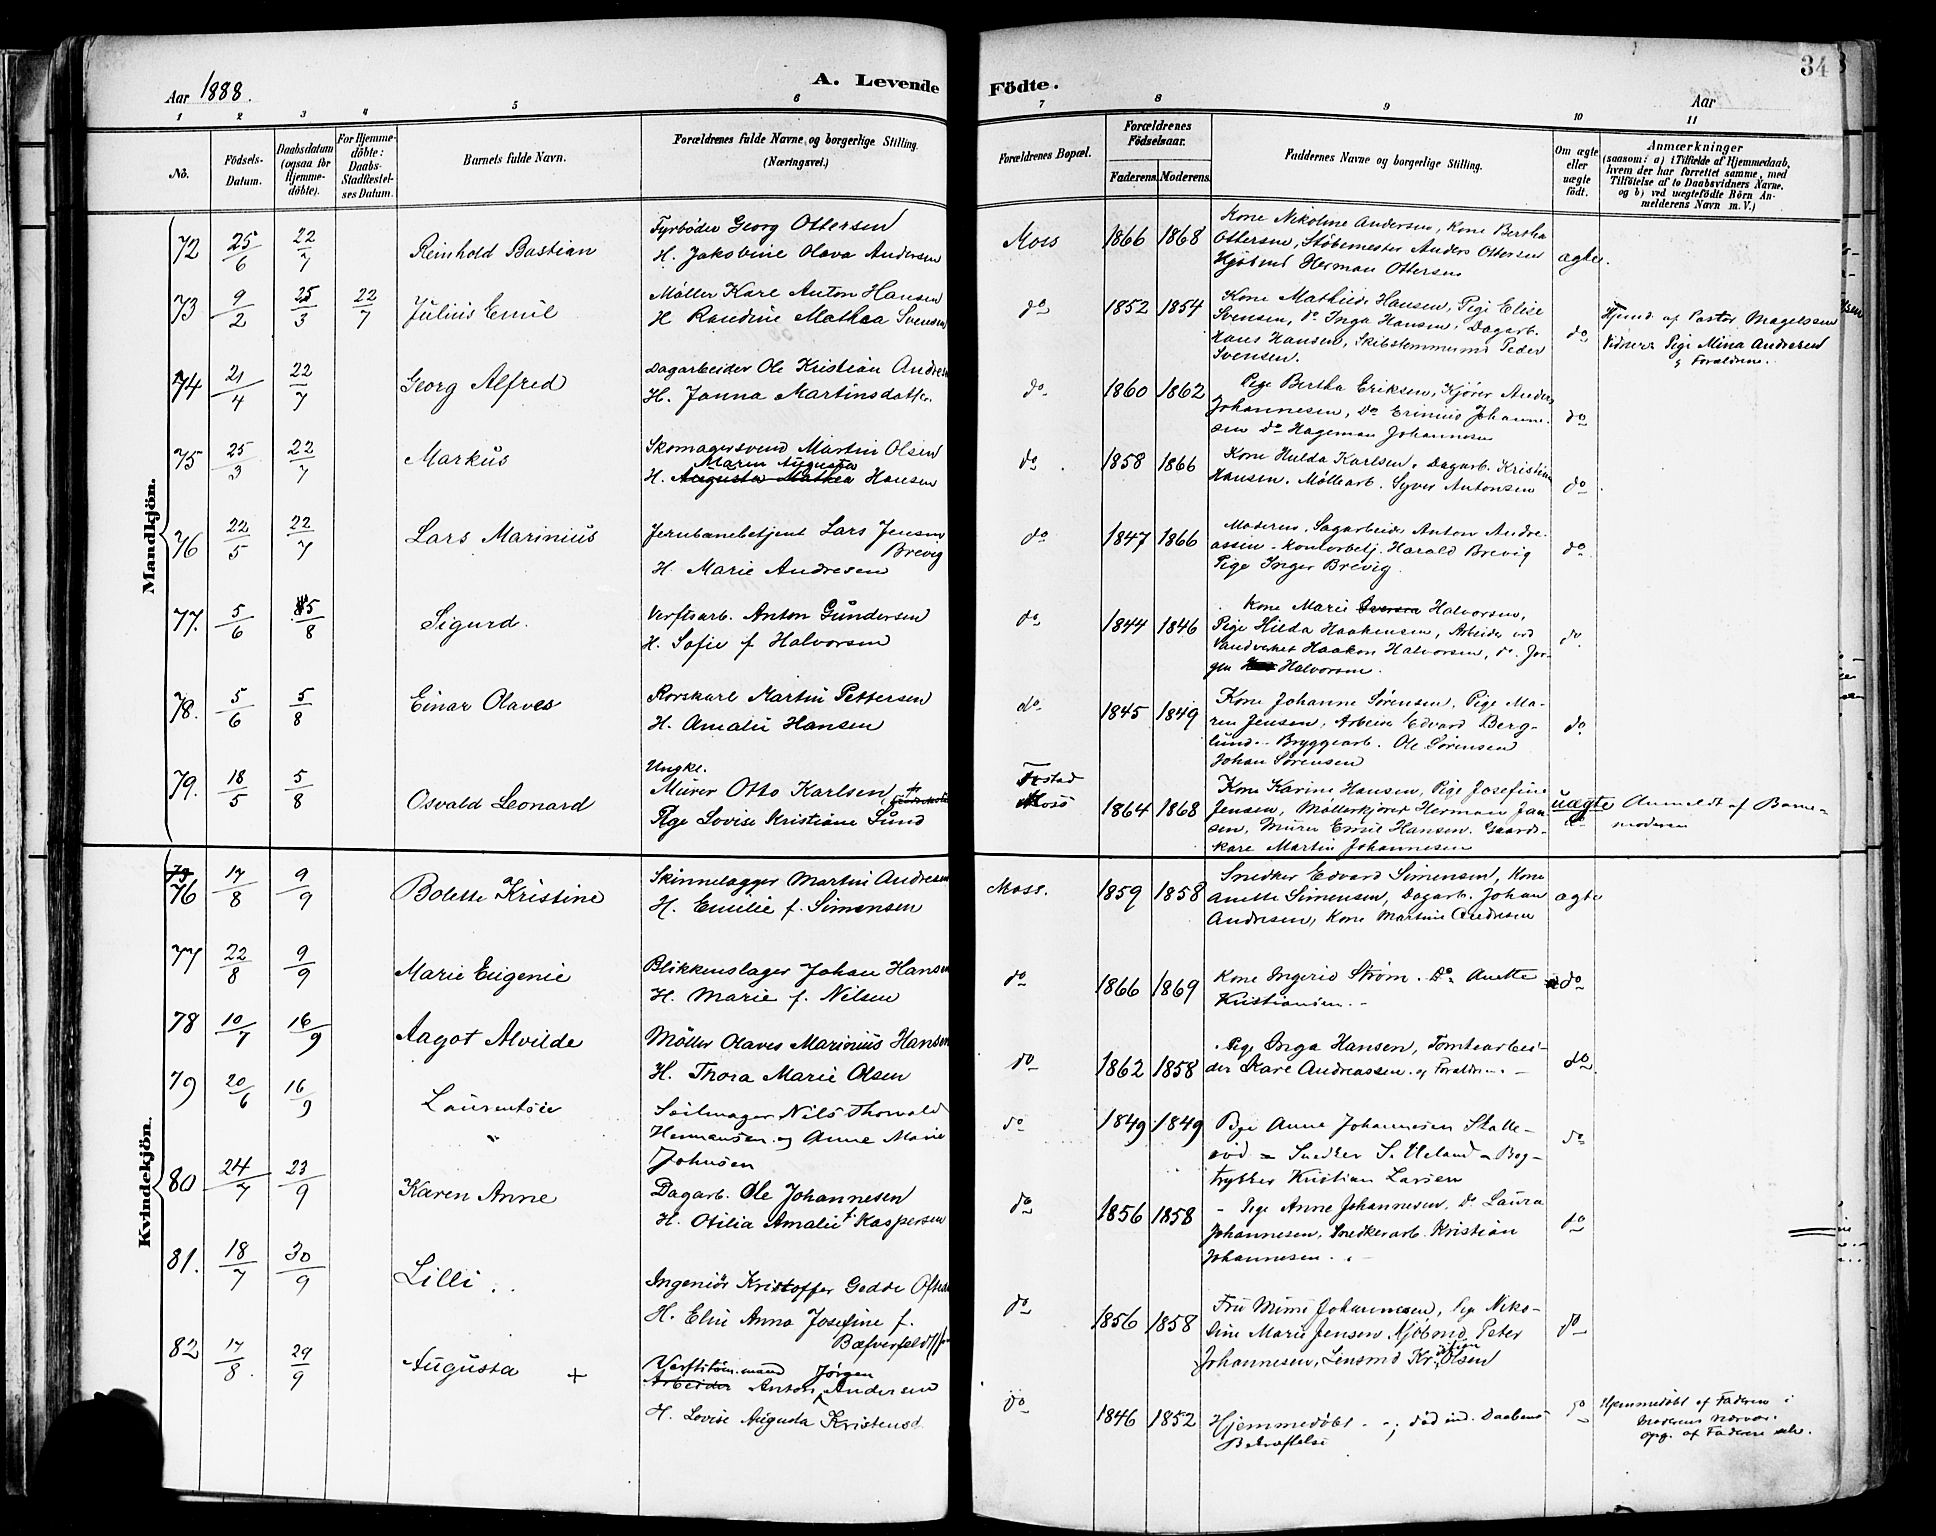 34
Aar 1888.
A. Levende Födte.
Aar
1 2 3 4 5 6 7 8 9 10 11
No.
Födsels-Datum.
Daabsdatum (ogsaa for Hjemmedöbte).
For Hjemmedöbte: Daabs-Stadfæstelses Datum.
Barnets fulde Navn.
Forældrenes fulde Navne og borgerlige Stilling. (Næringsvei.)
Forældrenes Bopæl.
Forældrenes Födselsaar.
Faderens. Moderens.
Faddernes Navne og borgerlige Stilling.
Om ægte eller uægte födt.
Anmærkninger
(saasom: a) i Tilfælde af Hjemmedaab, hvem der har forrettet samme, med Tilföielse af to Daabsvidners Navne, og b) ved uægtefödte Börn Anmelderens Navn m. V.)
Mandkjön.
72 25/6 22/7 Reinhold Bastian
Fyrbøder Georg Ottersen
H. Jakobine Olava Andersen
Moss 1866 1868
Kone Nikoline Andersen, Kone Bertha
Ottersen, Støbemester Anders Ottersen
Herman Ottersen
ægte.
73 9/2 25/3 22/7 Julius Emil
Møller Karl Anton Hansen
H. Randine Mathea Svensen
do 1852 1854
Kone Mathilde Hansen, Pige Elise
Svensen, do Inga Hansen, Dagarb.
Hans Hansen, Skibstømmermd Peder
Svensen.
do
Hjemd. af Pastor Magelssen
Vidner: Pige Mina Andresen
og Forældrene.
74 21/4 22/7 Georg Alfred
Dagarbeider Ole Kristian Andresen
H. Janna Martinsdatter
do 1860 1862
Pige Bertha Eriksen, Kjører Anders
Johannesen, do Johannesen
do Hageman Johannesen
do
75 25/3 22/7 Markus
Skomagersvend Martin Olsen
Maren Augusta
H. Augusta Mathea Hansen
do 1858 1866
Kone Hulda Karlsen, Dagarb. Kristian
Hansen, Møllearb. Syver Antonsen
do
76 22/5 22/7 Lars Marinius
Jernbanebetjent Lars Jensen
Brevig
H. Marie Andresen
do 1847 1866
Moderen, Sagarbeider Anton Andreassen
Kontorbetj. Harald Brevig
Pige Inger Brevig
do
77. 5/6 5/8 Sigurd.
Verftsarb. Anton Gundersen
H. Sofie f. Halvorsen
do 1844 1846
Kone Marie Halvorsen,
Pige Hilda Haakensen, Arbeider ved
Vandverket Haakon Halvorsen, do. Jør-
gen Halvorsen.
do.
78. 5/6 5/8 Einar Olaves
Rorskarl Martin Pettersen
H. Amalie Hansen
do 1845 1849
Kone Johanne Sørensen, Pige Ma-
ren Jensen, Arbeider Edvard Berg-
lund. Bryggearb. Ole Sørensen
Johan Sørensen
do
79. 18/5 5/8 Osvald Leonard
Ungkl.
Murer Otto Karlsen
Pige Lovise Kristiane Lund
Moss 1864 1868
Kone Karine Hansen, Pige Josefine
Jensen, Møllerkjører Herman Jan-
sen, Murer Emil Hansen. Gaards-
kare Martin Johannesen
uægte
Anmeldt af Barne-
moderen
Kvindekjön.
75
76 17/8 9/9 Bolette Kristine
Martin Andresen
H. Emilie f. Simensen
Moss. 1859 1858
Snedker Edvard Simensen, Kone
Anette Simensen, Dagarb. Johan
Andresen, Kone Martine Andresen
ægte
77 22/8 9/9 Marie Eugenie
Blikkenslager Johan Hansen
H. Marie f. Nilsen
do 1866 1869
Kone Ingerid Strøm. Do Anette
Kristiansen.
do
78 10/7 16/9 Aagot Alvilde
Møller Olaves Marinius Hansen
H. Thora Marie Olsen
do 1862 1858
Pige Inga Hansen, Tomtearbei-
der Karl Andreassen. og Forældrene.
do
79 20/6 16/9
Seilmager Nils Thorvald
Hermansen og Anne Marie
Johnsen
do 1849 1849
Pige Anne Johannesen
Snedker S. Ueland - Bog-
trykker Kristian Larsen
do
80 24/7 23/9 Karen Anne
Dagarb. Ole Johannesen
H. Otilia Amalie f. Kaspersen
do 1856 1858
Pige Anne Johannesen, do Laura
Johannesen, Snedkerarb. Kristian
Johannesen.
do
81. 18/7 30/9 Lilli
Ingeniør Kristoffer Gedde
H. Elin Anna Josefine f.
Bæfverfeldt
do 1856 1858
Fru Mimi Johannesen, Pige Niko-
line Marie Jensen, Kjøbmd Peter
Johannesen, Lensmd Kristian Olsen
do
82 17/8. 29/9 Augusta +
Jørgen
Arbeider Anton Andersen
H. Lovise Augusta Kristensd.
do 1846 1852
Hjemmedøbt - ; død ind. Daabens
Bekræftelse
do
Hjemmedøbt af Faderen i
Moderens Nærvær.
Opg. af Faderen selv.